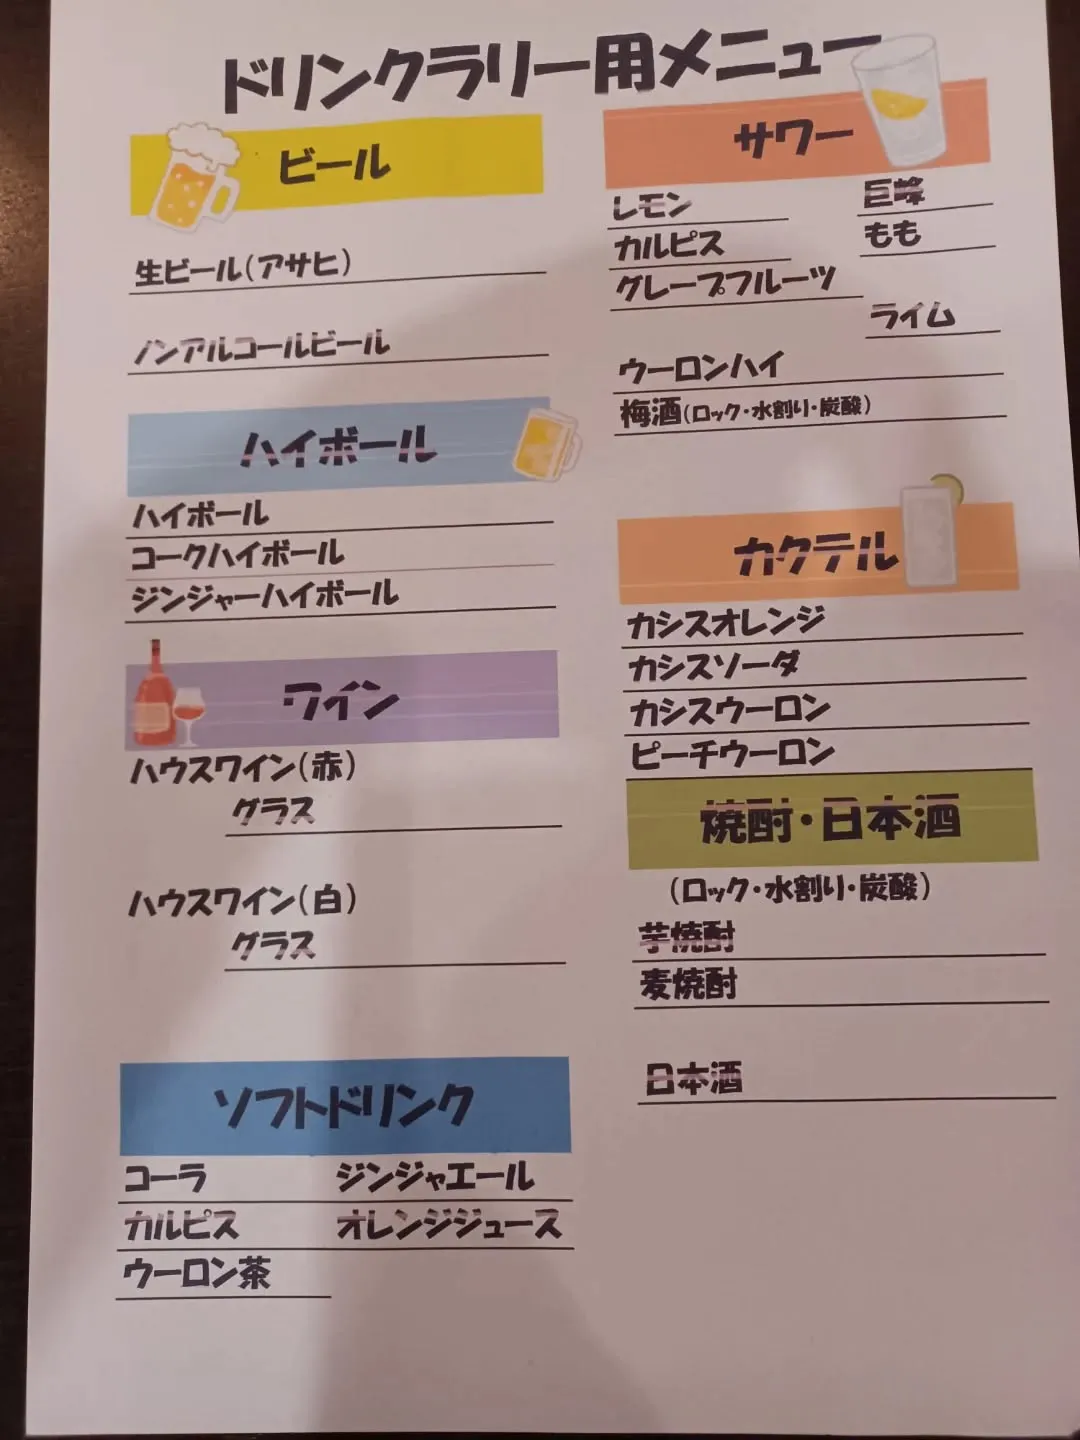 ドリンクラリー用メニュー
ビール
生ビール(アサヒ)
ノンアルコールビール
ハイボール
ハイボール
コークハイボール
ジンジャーハイボール
ワイン
ハウスワイン(赤)
グラス
ハウスワイン(白)
グラス
ソフトドリンク
コーラ ジンジャエール
カルピス オレンジジュース
ウーロン茶
サワー
レモン 巨峰
カルピス もも
グレープフルーツ
ライム
ウーロンハイ
梅酒(ロック・水割り・炭酸)
カクテル
カシスオレンジ
カシスソーダ
カシスウーロン
ピーチウーロン
焼酎・日本酒
(ロック・水割り・炭酸)
芋焼酎
麦焼酎
日本酒